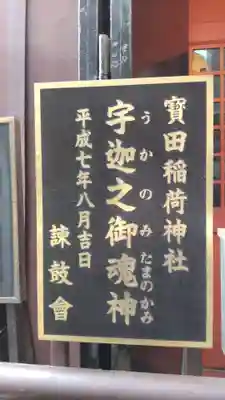 寳田稲荷神社
宇迦之御魂神
うかのみたまのかみ
平成七年八月吉日
諫鼓會